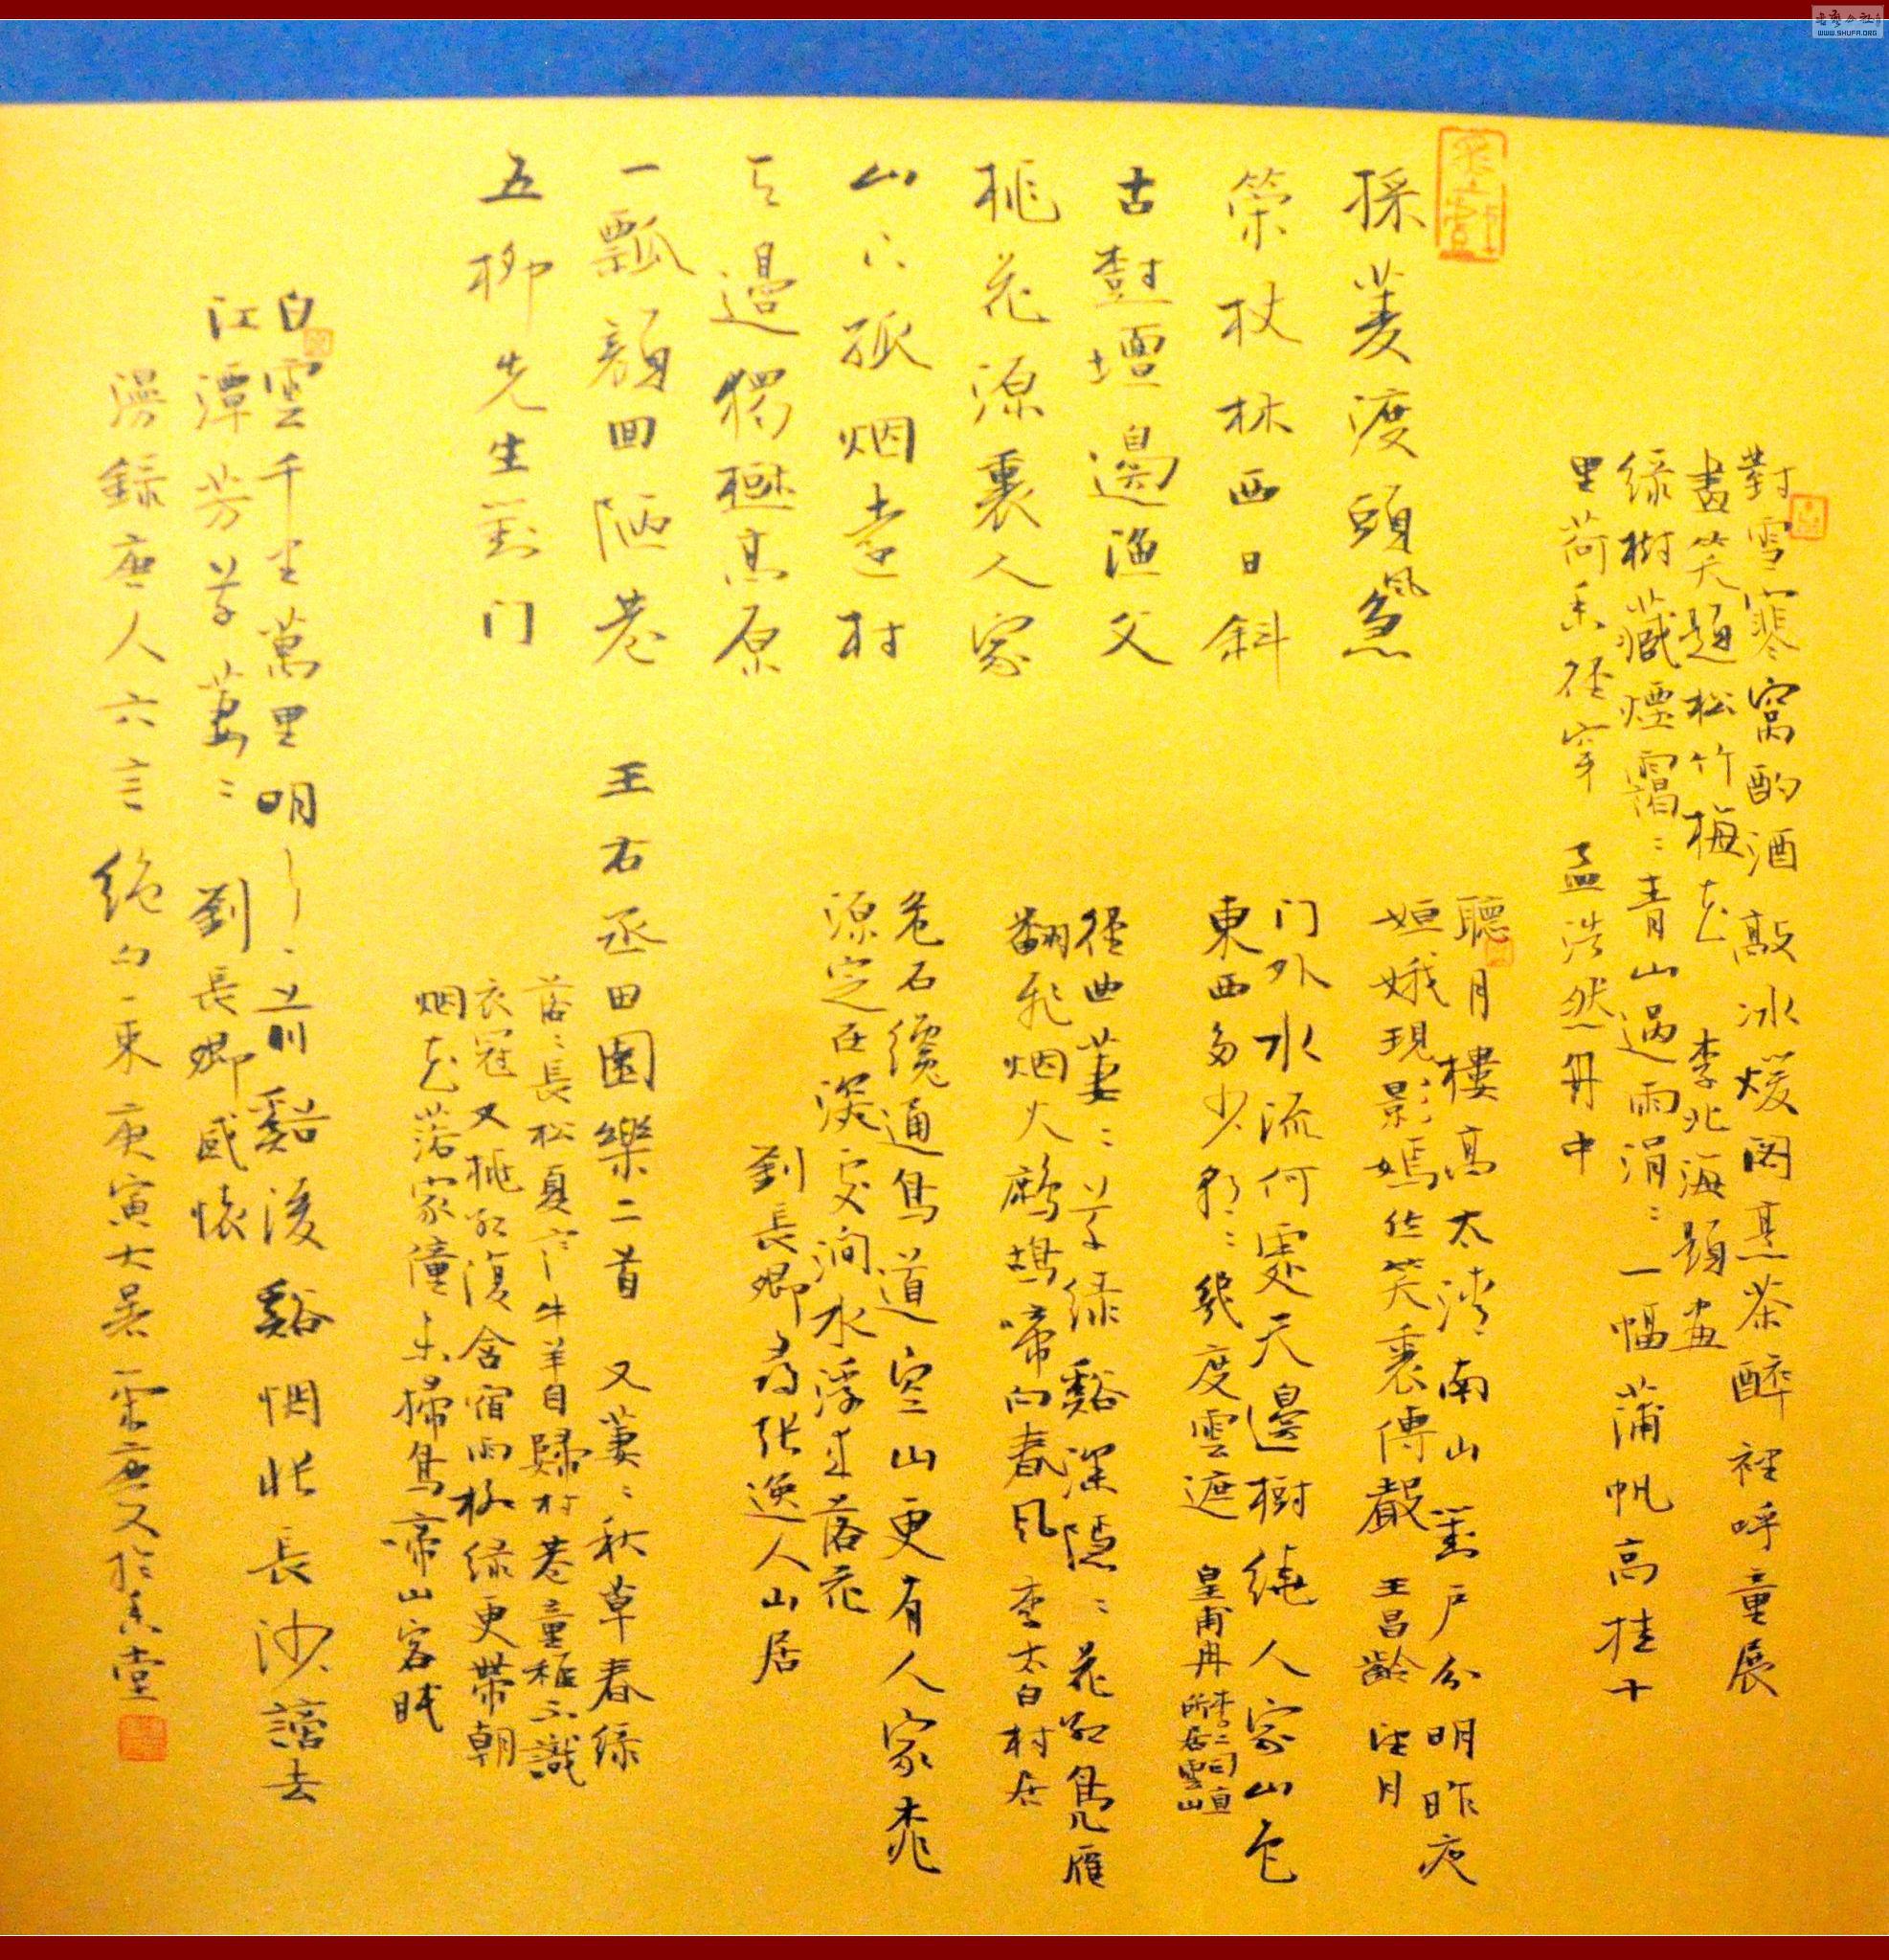 對雪寒窩酌酒敲冰煖閣烹茶醉裡呼童展
畫笑題松竹梅花 李北海題畫
綠樹藏煙靄〻青山過雨涓〻一幅蒲帆高挂十
里荷香徑穿 孟浩然舟中
採菱渡頭風急
策杖林西日斜
古樹壇邊漁父
桃花源裏人家
山〻孤烟遠村
天邊獨樹高原
一瓢顏回陋巷
五柳先生對门
王右丞田園樂二首 又萋〻秋草春綠
落〻長松夏寒牛羊自歸村巷童稚不識
衣冠 又桃紅復含宿雨柳綠更帶朝
烟花落家僮未掃鳥啼山客眠
聽月樓高太清南山對戶分明昨夜
姮娥現影嫣然笑裏傳聲 王昌齡 望月
门外水流何處天邊樹繞人家山色
東西多少朝〻幾度雲遮 皇甫冉
李二司直
所居雲山
徑曲萋〻草綠谿深隱〻花紅鳧雁
翻飛烟火鷓鴣啼向春風 李太白村居
危石纔通鳥道空山更有人家桃
源定在深處澗水浮來落花
劉長卿尋张逸人山居
白雲千里萬里明月前谿後谿惆悵長沙謫去
江潭芳草萋〻 劉長卿感懷
漫錄唐人六言絕句一束庚寅大暑
堂
WWW.SHUFA.ORG